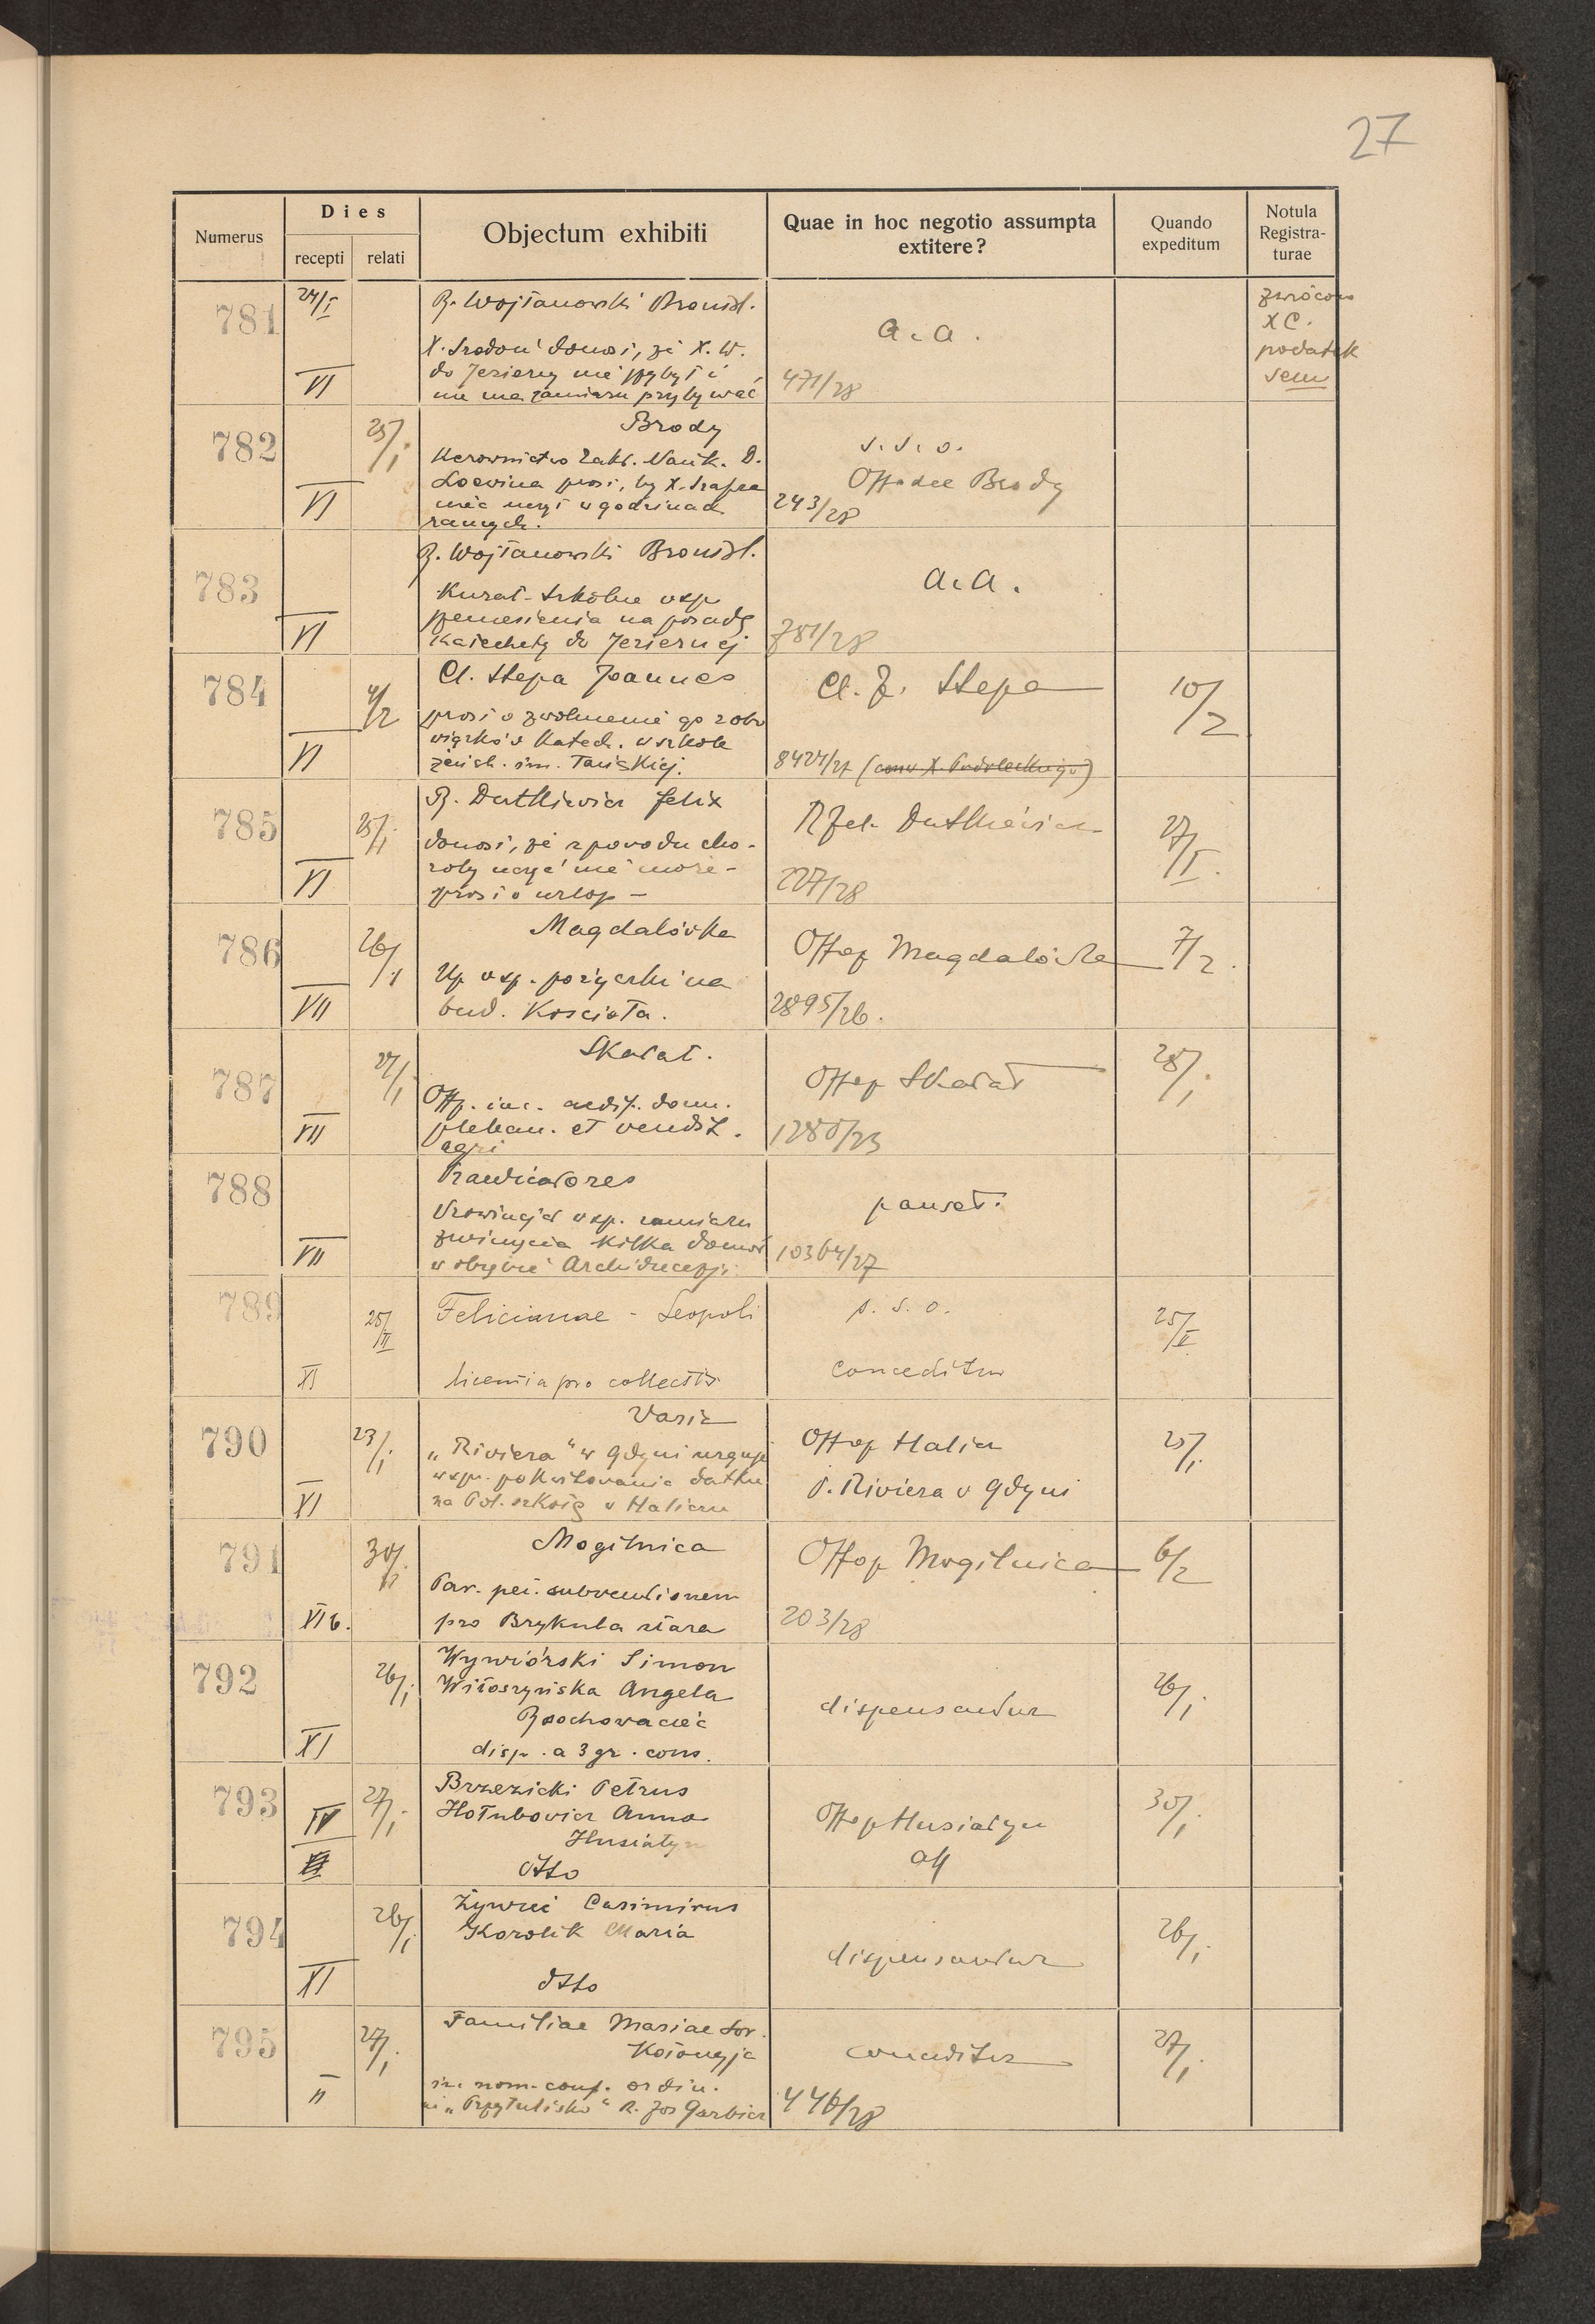 27
Numerus
Dies
recepti
relati
Objectum exhibiti
Quae in hoc negotio assumpta
extitere?
Quando
expeditum
Notula
Registra-
turae
781
24/I
VI
R. Wojtanowski Bronisl.
X. Środoń donosi, że X. W.
do Jezierny nie przybył i
nie ma zamiaru przybywać
a. a.
471/28
zwrócono
X C.
podatek
sem
782
VI
25/I
Brody
Kerownictwo Zakł. Nauk. D.
Loewina prosi, by X. Szafran
mógł uczyć w godzinach
ranych.
s. s. o.
Offo dec Brody
243/28
783
VI
R. Wojtanowski Bronisl.
Kurat. szkolne wsp.
przeniesienia na posadę
katechety do Jeziernej
a. a.
781/28
784
VI
4/2
Cl. Stepa Joannes
prosi o zwolnienie go z obo
wiązków katech. w szkole
żeńsk. im. Tańskiej.
Cl. J. Stepa
8424/27
10/2
785
VI
25/I
R. Dutkiewicz Felix
donosi, że z powodu cho-
roby uczyć nie może -
prosi o urlop -
R Fel. Dutkiewicz
227/28
27/I.
786
VII
26/1
Magdalówka
Up wsp. pożyczki na
bud. Kościoła.
Offop Magdalówka
2895/26.
7/2.
787
VII
27/I
Skałat.
Off. inc. aedif. dom.
pleban. et vendit.
agri
Offop Skałat
1280/23
28/I
788
VII
Praedicatores
Prowincjał wsp. zamiaru
zwinięcia kilka domów
w obrębie Archidiecezji
pausat.
10364/27
789
XI
25/II
Felicianae - Leopoli
licentia pro collectis
s. s. o.
conceditur
25/II
790
XI
23/I
Varia
„Riviera“ w Gdyni urguje
wspr. pokwitowania datku
na Pol. szkołę w Haliczu
Offop Halicz
P. Riviera w Gdyni
25/I
791
VII b.
30/I
Mogilnica
Par. pet. subventionem
pro Brykula stara
Offop Mogilnica
203/28
6/2
792
XI
26/I
Wywiórski Simon
Witoszyńska Angela
disp. a 3 gr. cons.
dispensantur
26/I
793
IV
27/I
Brzezicki Petrus
Hołubowicz Anna
Husiatyn
Otto
Offop Husiatyn
30/I
794
XI
26/I
Żywiec Casimirus
Korolik Maria
Otto
dispensantur
26/I
795
II
27/I
Familiae Mariae Sor.
Kołomyja
in. nom. conf. ordin.
w „Przytulisku“ R. Jos Garbicz
conceditur
446/28
27/I